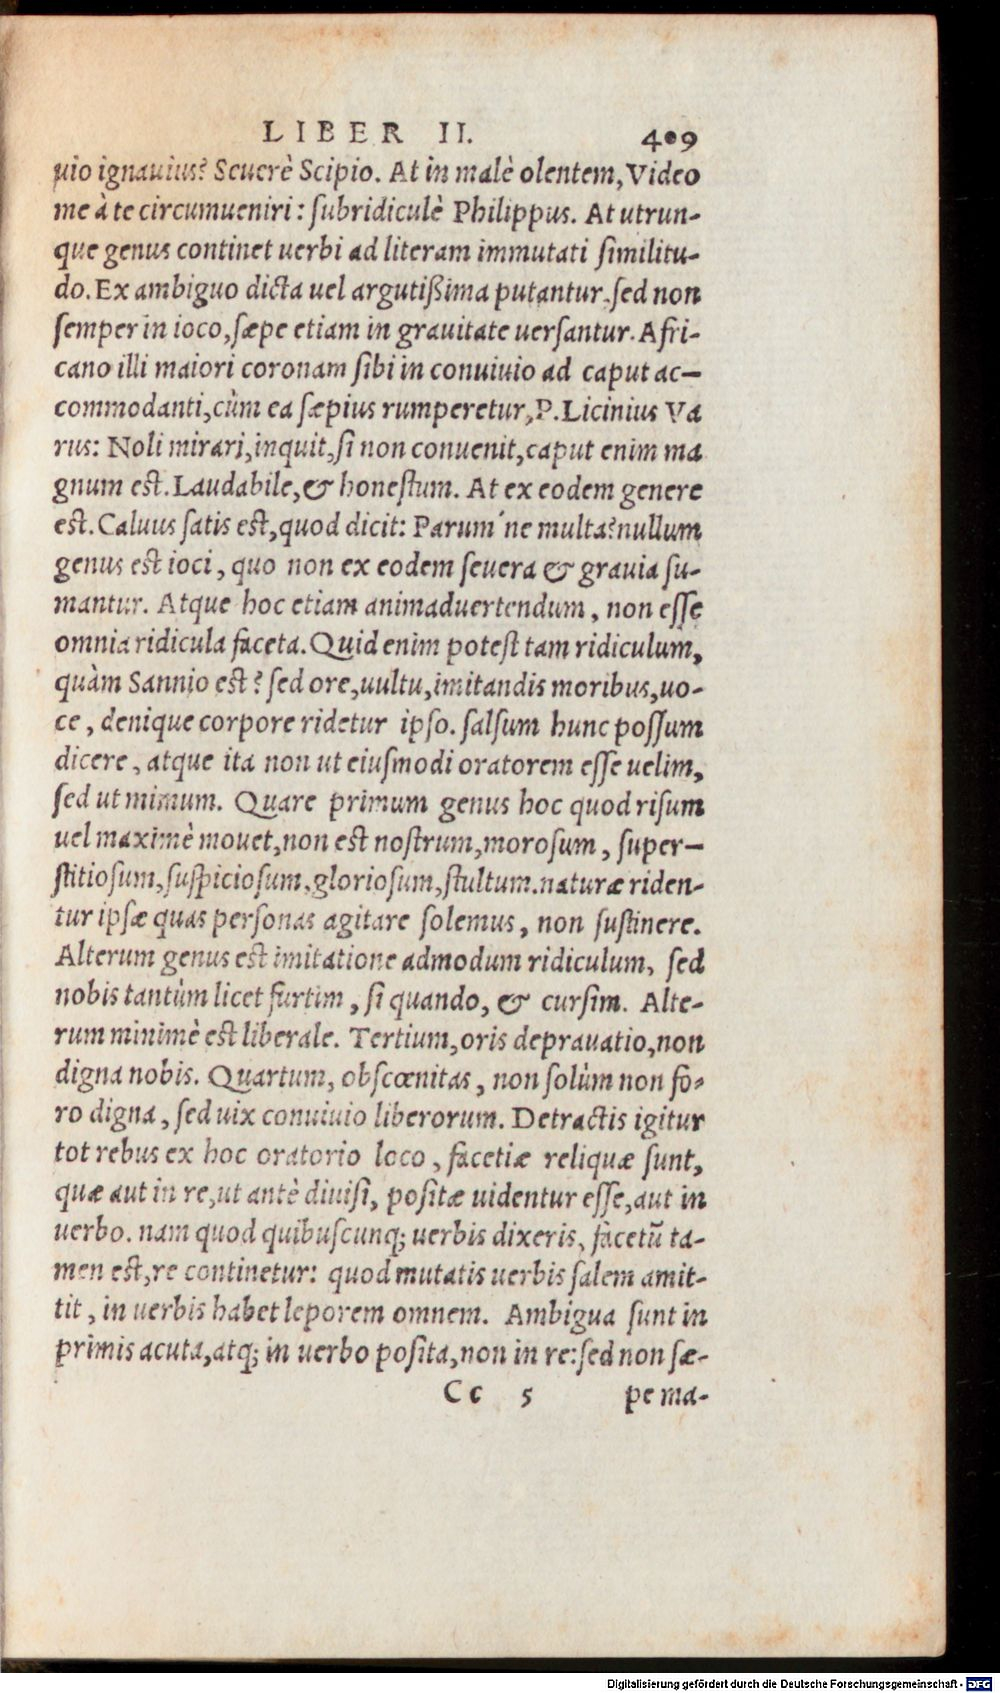 LIBER II. 409
uio ignauius? Seuerè Scipio. At in malè olentem, Video
me à te circumueniri: subridiculè Philippus. At utrun-
que genus continet uerbi ad literam immutati similitu-
do. Ex ambiguo dicta uel argutißima putantur, sed non
semper in ioco, sæpe etiam in grauitate uersantur. Afri-
cano illi maiori coronam sibi in conuiuio ad caput ac-
commodanti, cùm ea sæpius rumperetur, P. Licinius Va
rus: Noli mirari, inquit, si non conuenit, caput enim ma
gnum est. Laudabile, & honestum. At ex eodem genere
est. Caluus satis est, quod dicit: Parum'ne multa? nullum
genus est ioci, quo non ex eodem seuera & grauia su-
mantur. Atque hoc etiam animaduertendum, non esse
omnia ridicula faceta. Quid enim potest tam ridiculum,
quàm Sannio est? sed ore, uultu, imitandis moribus, uo-
ce, denique corpore ridetur ipso. salsum hunc possum
dicere, atque ita non ut eiusmodi oratorem esse uelim,
sed ut mimum. Quare primum genus hoc quod risum
uel maximè mouet, non est nostrum, morosum, super-
stitiosum, suspiciosum, gloriosum, stultum. naturæ riden-
tur ipsæ quas personas agitare solemus, non sustinere.
Alterum genus est imitatione admodum ridiculum, sed
nobis tantùm licet furtim, si quando, & cursim. Alte-
rum minimè est liberale. Tertium, oris deprauatio, non
digna nobis. Quartum, obscœnitas, non solùm non fo-
ro digna, sed uix conuiuio liberorum. Detractis igitur
tot rebus ex hoc oratorio loco, facetiæ reliquæ sunt,
quæ aut in re, ut antè diuisi, positæ uidentur esse, aut in
uerbo. nam quod quibuscunq; uerbis dixeris, facetū ta-
men est, re continetur: quod mutatis uerbis salem amit-
tit, in uerbis habet leporem omnem. Ambigua sunt in
primis acuta, atq; in uerbo posita, non in re: sed non sæ-
Cc 5 pe ma-
Digitalisierung gefördert durch die Deutsche Forschungsgemeinschaft - DFG